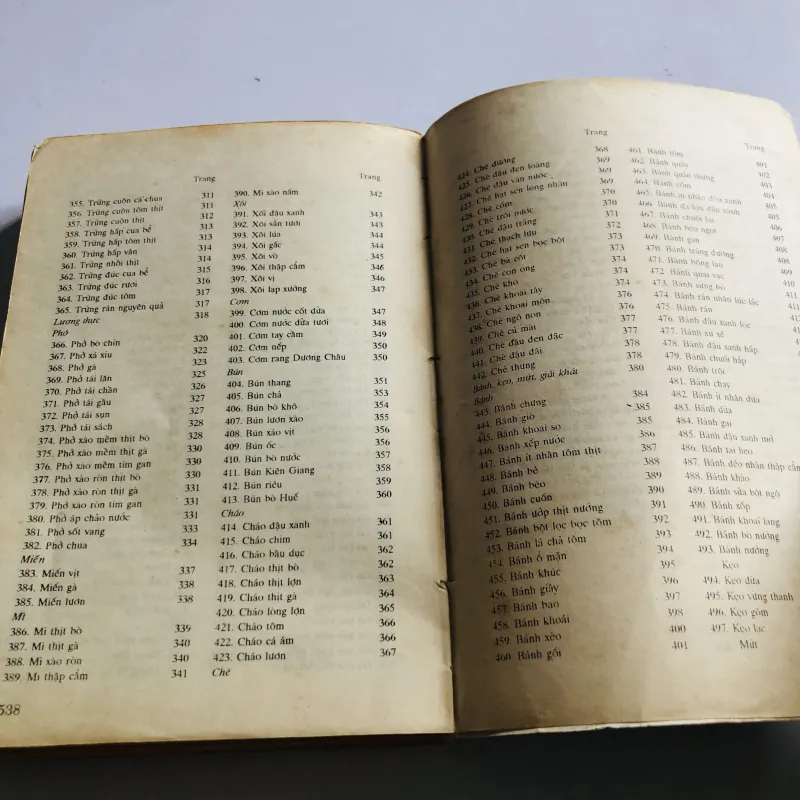 Trang
355. Trứng cuôn cà chua 311
356. Trứng cuôn tôm thịt 311
357. Trứng cuôn thịt 312
358. Trứng hấp cua bể
359. Trứng hấp tôm thịt 313
360. Trứng hấp vân
361. Trứng nhồi thịt 314
362. Trứng đúc cua bể 315
363. Trứng đúc rươi
364. Trứng đúc tôm 317
365. Trứng rán nguyên quả 318
Lương thực
Phở
366. Phở bò chín 320
367. Phở xá xíu 322
368. Phở gà 323
369. Phở tái lăn 325
370. Phở tái chần 326
371. Phở tái gầu 327
372. Phở tái sụn 327
373. Phở tái sách 327
374. Phở xào mềm thịt bò 328
375. Phở xào mềm thịt gà 329
376. Phở xào mềm tim gan 330
377. Phở xào ròn thịt bò 330
378. Phở xào ròn thịt gà 331
379. Phở xào ròn tim gan 331
380. Phở áp chảo nước 331
381. Phở sốt vang 333
382. Phở chua 334
Miến
383. Miến vịt 337
384. Miến gà 338
385. Miến lươn 338
Mì
386. Mì thịt bò 339
387. Mì thịt gà 340
388. Mì xào ròn 340
389. Mì thập cẩm 341
538
Trang
390. Mì xào nấm 342
Xôi
391. Xôi đậu xanh 343
392. Xôi sắn tươi 343
393. Xôi lúa 344
394. Xôi gấc 344
395. Xôi vò 345
396. Xôi thập cẩm 346
397. Xôi vị 346
398. Xôi lạp xưởng 347
Cơm
399. Cơm nước cốt dừa 347
400. Cơm nước dừa tươi 348
401. Cơm tay cầm 348
402. Cơm nếp 350
403. Cơm rang Dương Châu 350
Bún
404. Bún thang 351
405. Bún chả 353
406. Bún bò khô 354
407. Bún lươn xào 355
408. Bún xáo vịt 356
409. Bún ốc 356
410. Bún bò nước 357
411. Bún Kiên Giang 358
412. Bún riêu 359
413. Bún bò Huế 360
Cháo
414. Cháo đậu xanh 361
415. Cháo chim 361
416. Cháo bầu dục 362
417. Cháo thịt bò 362
418. Cháo thịt lợn 363
419. Cháo thịt gà 364
420. Cháo lòng lợn 365
421. Cháo tôm 366
422. Cháo cá ám 366
423. Cháo lươn 367
Chè
Trang
424. Chè đường 368
425. Chè đậu đen loãng 369
426. Chè đậu ván nước 369
427. Chè hạt sen long nhãn 369
428. Chè cốm 370
429. Chè trôi nước 370
430. Chè đậu trắng 371
431. Chè thạch lựu 371
432. Chè hạt sen bọc bột 372
433. Chè bà cốt 373
434. Chè con ong 374
435. Chè kho 374
436. Chè khoai tây 376
437. Chè khoai môn 376
438. Chè ngô non
439. Chè củ mài 377
440. Chè đậu đen đặc 377
441. Chè đậu đãi 378
442. Chè thưng 380
Bánh, kẹo, mứt, giải khát
Bánh
443. Bánh chưng 384
444. Bánh giò 385
445. Bánh khoai sọ 385
446. Bánh xếp nước 386
447. Bánh ít nhân tôm thịt 387
448. Bánh bẻ 388
449. Bánh bèo
450. Bánh cuốn 390
451. Bánh ướp thịt nướng 391
452. Bánh bột lọc bọc tôm 392
453. Bánh lá chả tôm 394
454. Bánh ổ mận 395
455. Bánh khúc
456. Bánh giầy 396
457. Bánh bao 397
458. Bánh khoái 398
459. Bánh xèo 400
460. Bánh gối 401
Trang
461. Bánh tôm 401
462. Bánh quấy 402
463. Bánh quấn thừng 403
464. Bánh cốm 404
465. Bánh in nhân đậu xanh 404
466. Bánh đa kê đậu xanh 405
467. Bánh chuối lạc 405
468. Bánh bẻo ngọt
469. Bánh gan
470. Bánh tráng đường
471. Bánh bông lan
472. Bánh quai vạc
473. Bánh sừng bò 410
474. Bánh rán nhân lúc lắc 411
475. Bánh rán
476. Bánh đậu xanh lọc
477. Bánh xu xê
478. Bánh đậu xanh hấp
479. Bánh chuối hấp
480. Bánh trôi
481. Bánh chay
482. Bánh ít nhân dừa
483. Bánh dừa
484. Bánh gai
485. Bánh đậu xanh mỡ
486. Bánh tai heo
487. Bánh dẻo nhân thập cẩm
488. Bánh khảo
489. Bánh sữa bột ngô
490. Bánh xốp
491. Bánh khoai lang
492. Bánh bò nướng
493. Bánh nướng
Kẹo
494. Kẹo dừa
495. Kẹo vừng thanh
496. Kẹo gôm
497. Kẹo lạc
Mứt